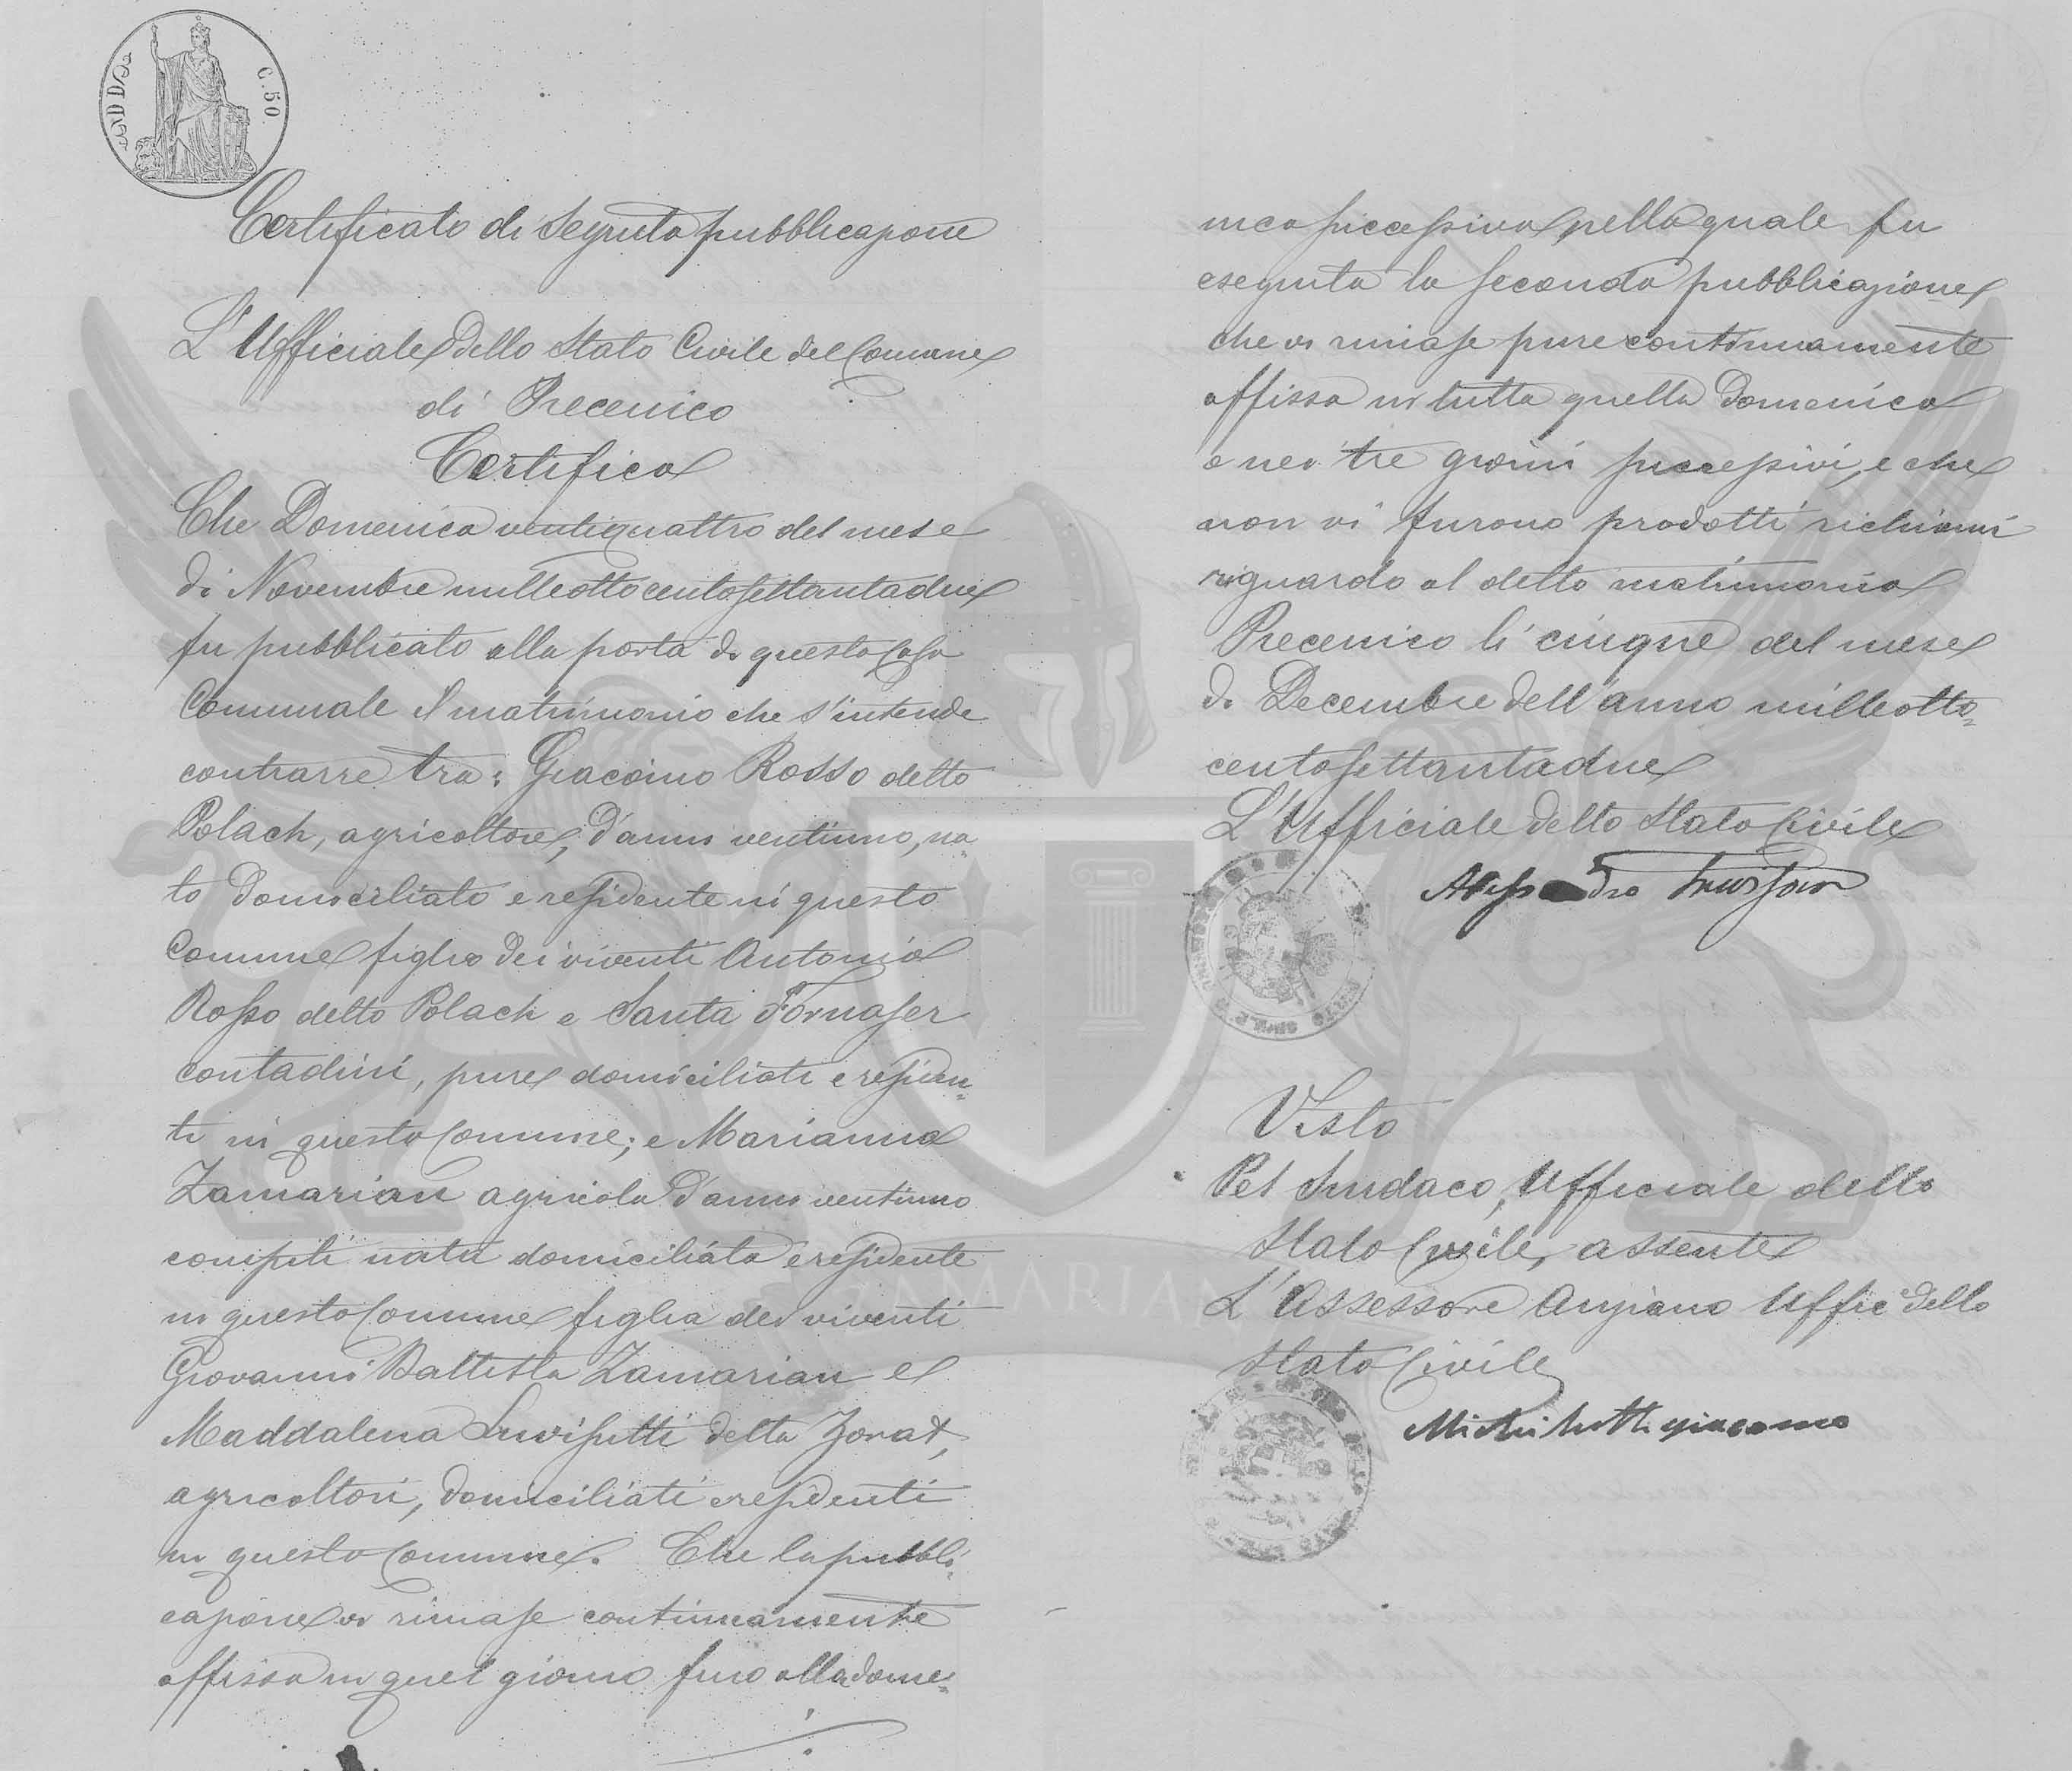 C. 50
Certificato di Seguita pubblicazione
L'Ufficiale dello Stato Civile del Comune
di Precenico
Certifica
Che Domenica ventiquattro del mese
di Novembre milleottocentosettantadue
fu pubblicato alla porta di questa Casa
Comunale il matrimonio che s'intende
contrarre tra: Giacomo Rosso detto
Polach, agricoltore, d'anni ventiuno, na
to domiciliato e residente in questo
Comune figlio dei viventi Antonio
Rosso detto Polach e Santa Fornaser
contadini, pure domiciliati e residen=
ti in questo Comune; e Marianna
Zamarian agricola d'anni ventiuno
compiti nata domiciliata e residente
in questo Comune figlia dei viventi
Giovanni Battista Zamarian e
Maddalena Luvisutti detta Zorat,
agricoltori, domiciliati e residenti
in questo Comune. Che la pubbli=
cazione vi rimase continuamente
affissa in quel giorno fino alla dome=
nica successiva, nella quale fu
eseguita la seconda pubblicazione
che vi rimase pure continuamente
affissa in tutta quella Domenica
e nei tre giorni successivi, e che
non vi furono prodotti richiami
riguardo al detto matrimonio
Precenico li cinque del mese
di Decembre dell'anno milleotto=
centosettantadue
L'Ufficiale dello Stato Civile
Alessandro
Visto
Pel Sindaco, Ufficiale dello
Stato Civile, assente
L'Assessore Anziano Uffic dello
Stato Civile
giacomo
ZAMARIAN